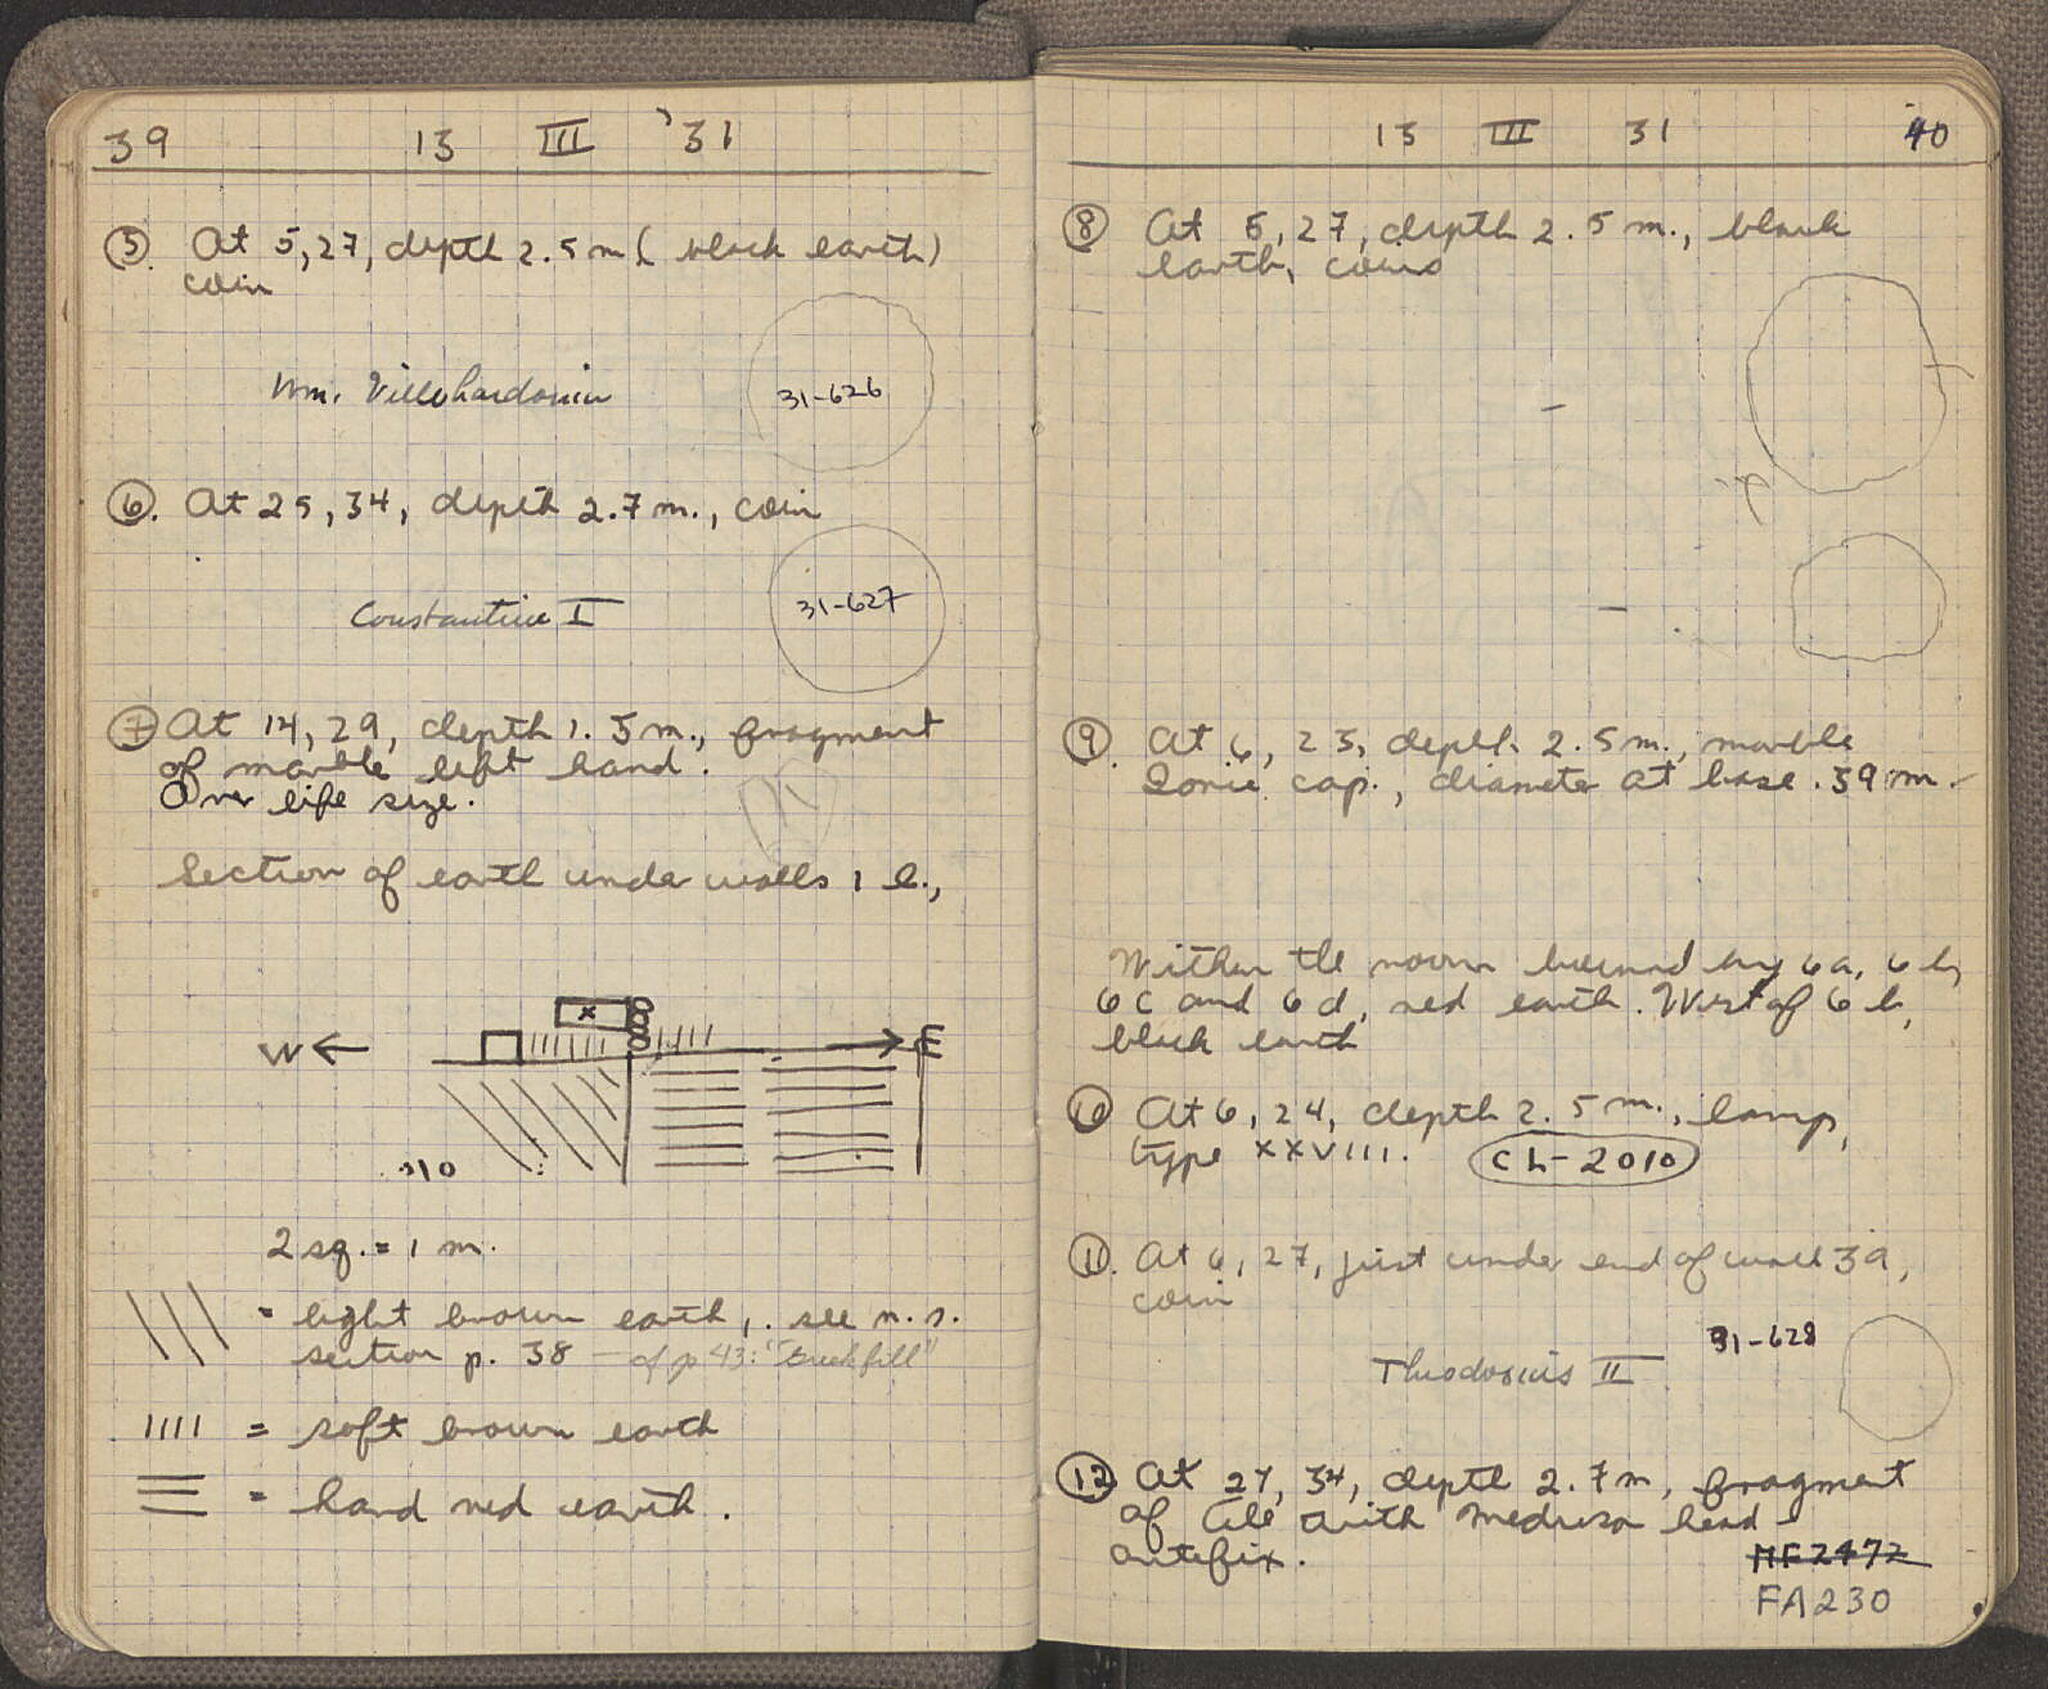 39 13 III '31
5. At 5, 27, depth 2.5 m (black earth)
coin
Wm. Villehardouin 31-626
6. At 25, 34, depth 2.7 m., coin
Constantine I 31-627
7 At 14, 29, depth 1.5 m., fragment
of marble left hand.
Over life size.
Section of earth under walls 1 e.,
x
W E
2 sq. = 1 m.
= light brown earth, see n. s.
section p. 38 – cf p 43: "Greek fill"
= soft brown earth
= hard red earth.
13 III 31 40
8 At 5, 27, depth 2.5 m., black
earth, coins
9. At 6, 23, depth 2.5 m., marble
Ionic cap., diameter at base .39 m.
Within the room bound by 6a, 6b,
6c and 6d, red earth. West of 6b,
black earth
10 At 6, 24, depth 2.5 m., lamp,
type XXVIII. CL-2010
11. At 6, 27, just under end of wall 3a,
coin
31-628
Theodosius II
12 At 27, 34, depth 2.7 m, fragment
of tile with medusa head
antefix.
MF2472
FA230